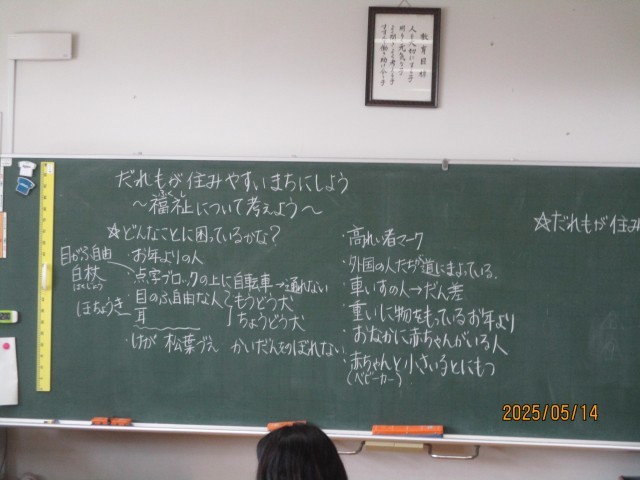 教育目標
人を大切にする子
明るく元気な子
よく聞きよく考える子
すすんで働き助け合う子
だれもが住みやすいまちにしよう
～福祉について考えよう～
ふくし
☆どんなことに困っているかな?
・お年よりの人
目がふ自由
白杖
はくじょう
・点字ブロックの上に自転車→通れない
・目のふ自由な人 もうどう犬
ほちょうき 耳 ちょうどう犬
・けが 松葉づえ かいだんをのぼれない
・高れい者マーク
・外国の人たちが道にまよっている。
・車いすの人→だん差
・重いに物をもっているお年より
・おなかに赤ちゃんがいる人
・赤ちゃんと小さい子とにもつ
(ベビーカー)
☆だれもが住み
2025/05/14